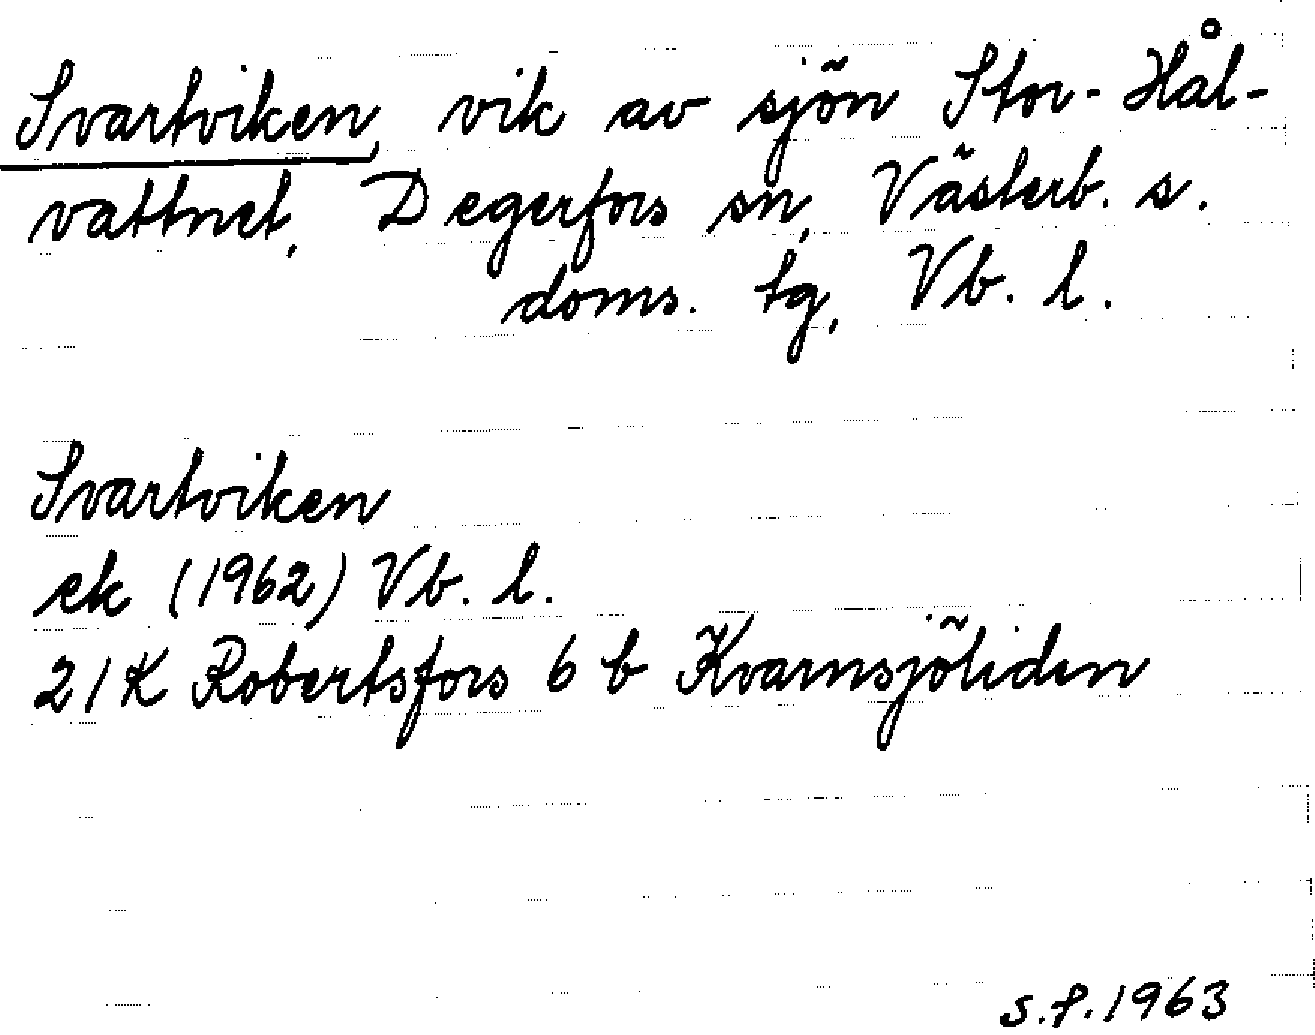 Svartviken, vik av sjön Stor-Hål-
vattnet, Degerfors sn, Västerb. s.
doms. tg, Vb. l.
Svartviken
ek (1962) Vb. l.
21K Robertsfors 6 b Kvarnsjöliden
s.f. 1963